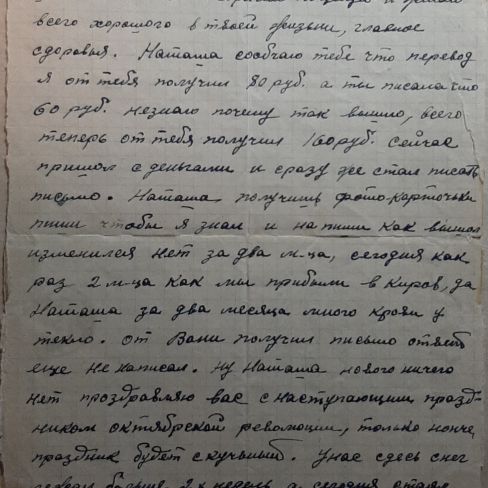 всего хорошого в твоей жизьни, главное
здоровья. Наташа сообчаю тебе что перевод
я от тебя получил 80 руб. а ты писала что
60 руб. незнаю почему так вышло, всего
теперь от тебя получил 160 руб. Сейчас
пришол с деньгами и сразу же стал писать
письмо. Наташа получишь фото-карточьки
пиши чтобы я знал и напиши как вышол
изменился нет за два м-ца, сегодня как
раз 2 м-ца как мы прибыли в Киров, да
Наташа за два месяца много крови у
текло. от Вани получил письмо ответ
еще не написал. Ну Наташа нового ничего
нет проздравляю вас с наступающим празд-
ником октябрской революции, только нонче
праздник будет скучьный. У нас сдесь снег
больше 2х недель а сегодня